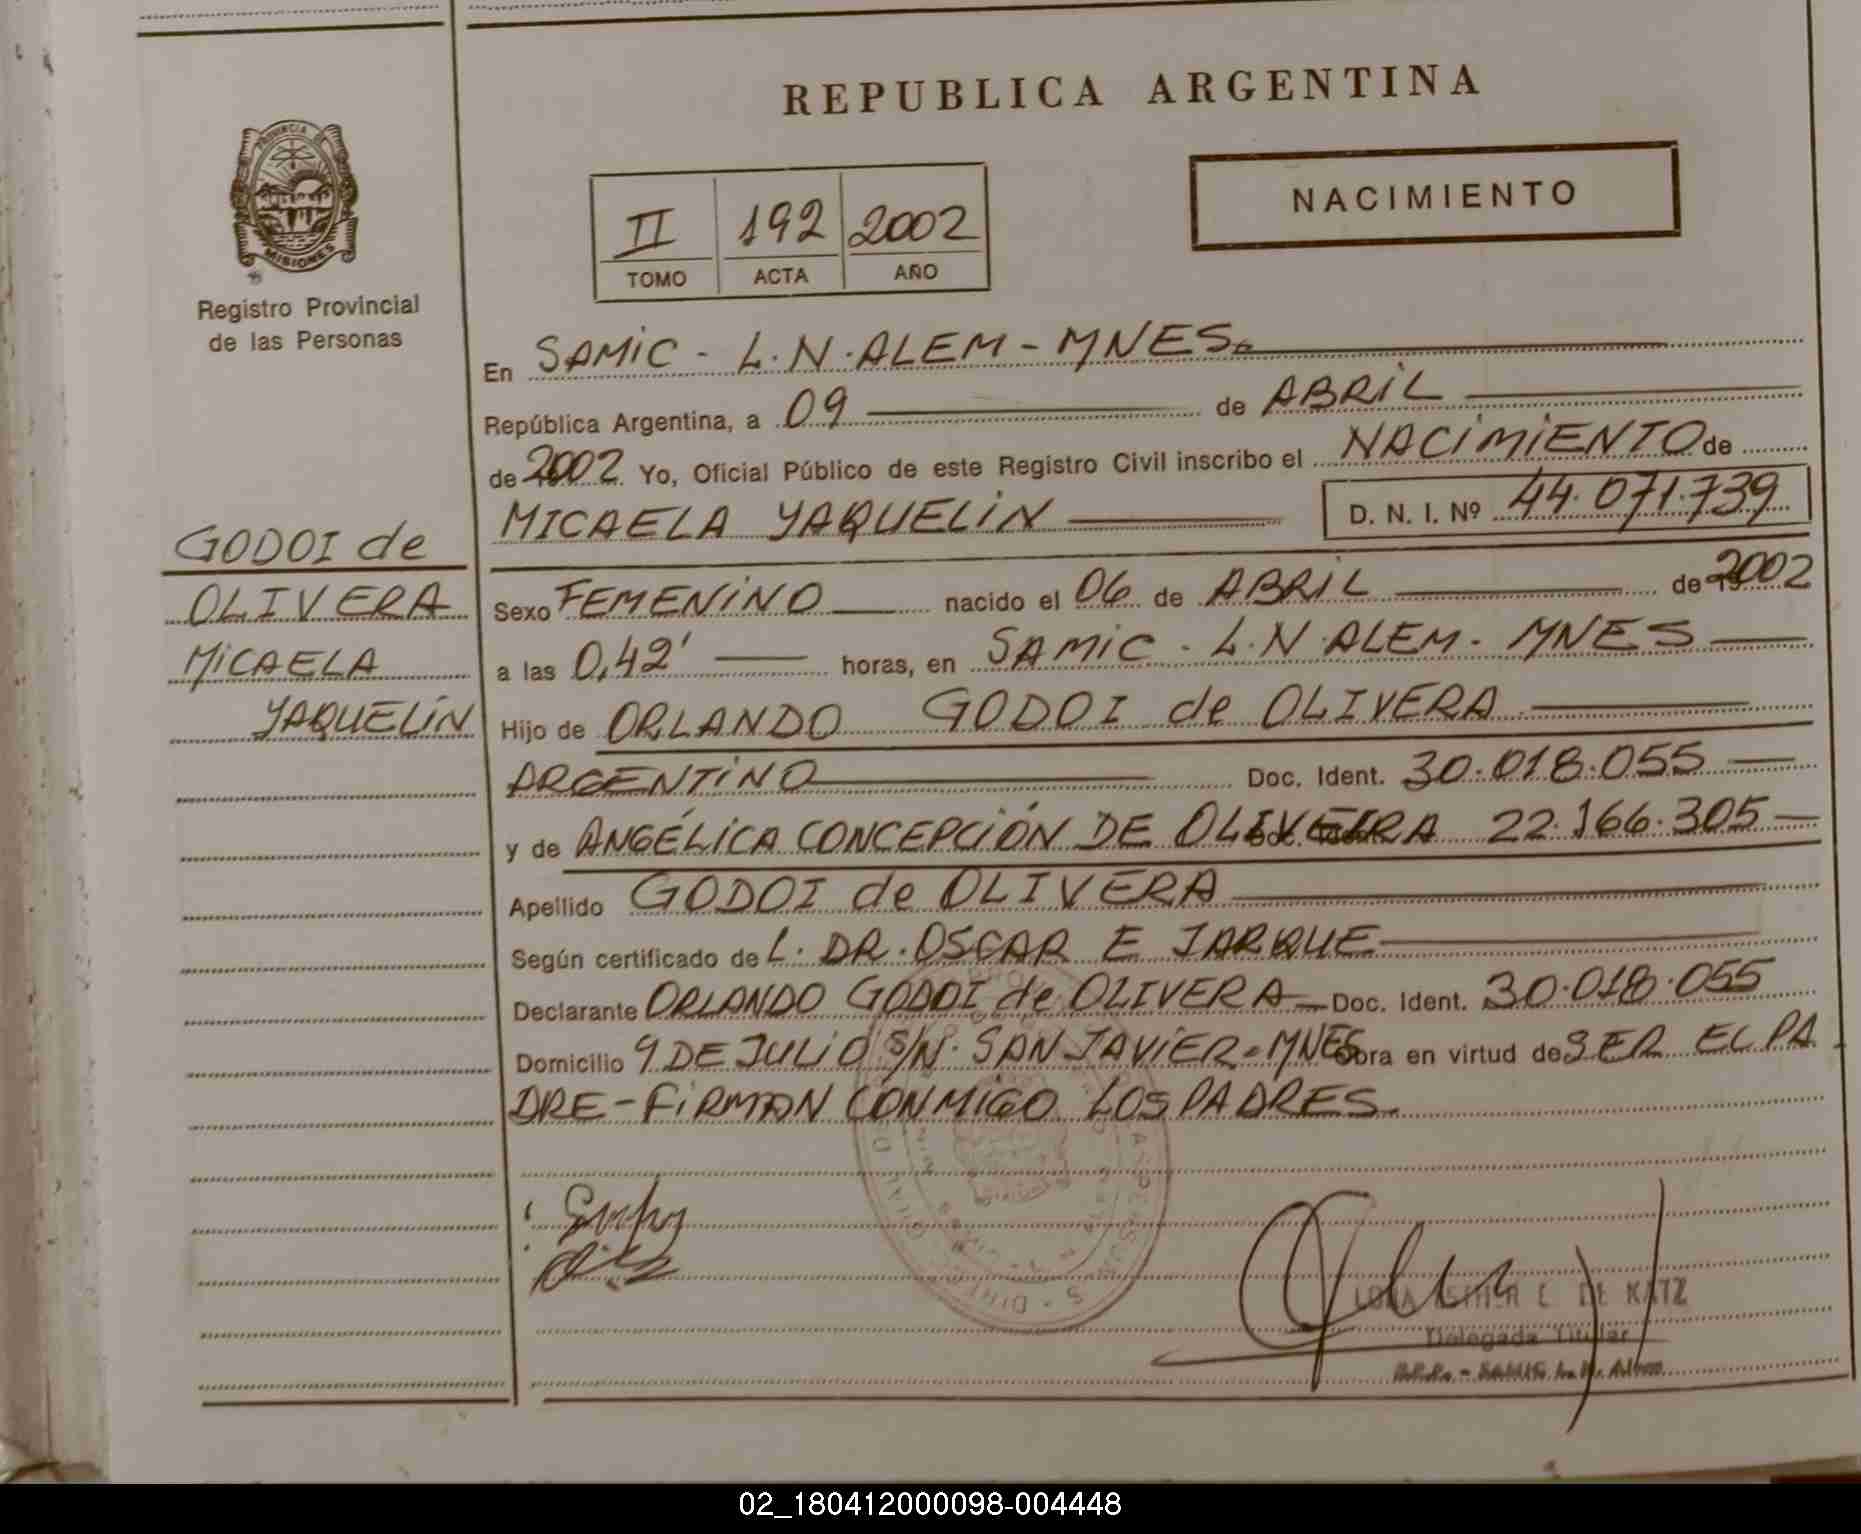 REPUBLICA ARGENTINA
PROVINCIA DE
MISIONES
Registro Provincial
de las Personas
NACIMIENTO
II 192 2002
TOMO ACTA AÑO
En SAMIC - L.N. ALEM - MNES.
República Argentina, a 09 de ABRIL
de 2002 Yo, Oficial Público de este Registro Civil inscribo el NACIMIENTO de
MICAELA YAQUELIN D. N. I. Nº 44.071.739
GODOI de
OLIVERA
MICAELA
YAQUELIN
Sexo FEMENINO nacido el 06 de ABRIL de 2002
a las 0,42' horas, en SAMIC - L.N. ALEM - MNES
Hijo de ORLANDO GODOI de OLIVERA
ARGENTINO Doc. Ident. 30.018.055
y de ANGÉLICA CONCEPCIÓN DE OLIVEIRA 22.166.305
Apellido GODOI de OLIVERA
Según certificado de L. DR. OSCAR E JARQUE
Declarante ORLANDO GODOI de OLIVERA Doc. Ident. 30.018.055
Domicilio 9 DE JULIO S/N. SAN JAVIER - MNES Obra en virtud de SER EL PA
DRE - FIRMAN CONMIGO LOS PADRES.
ESTHER E. DE KATZ
Delegada Titular
R.P.P. - SAMIC L. N. Alem
02_180412000098-004448